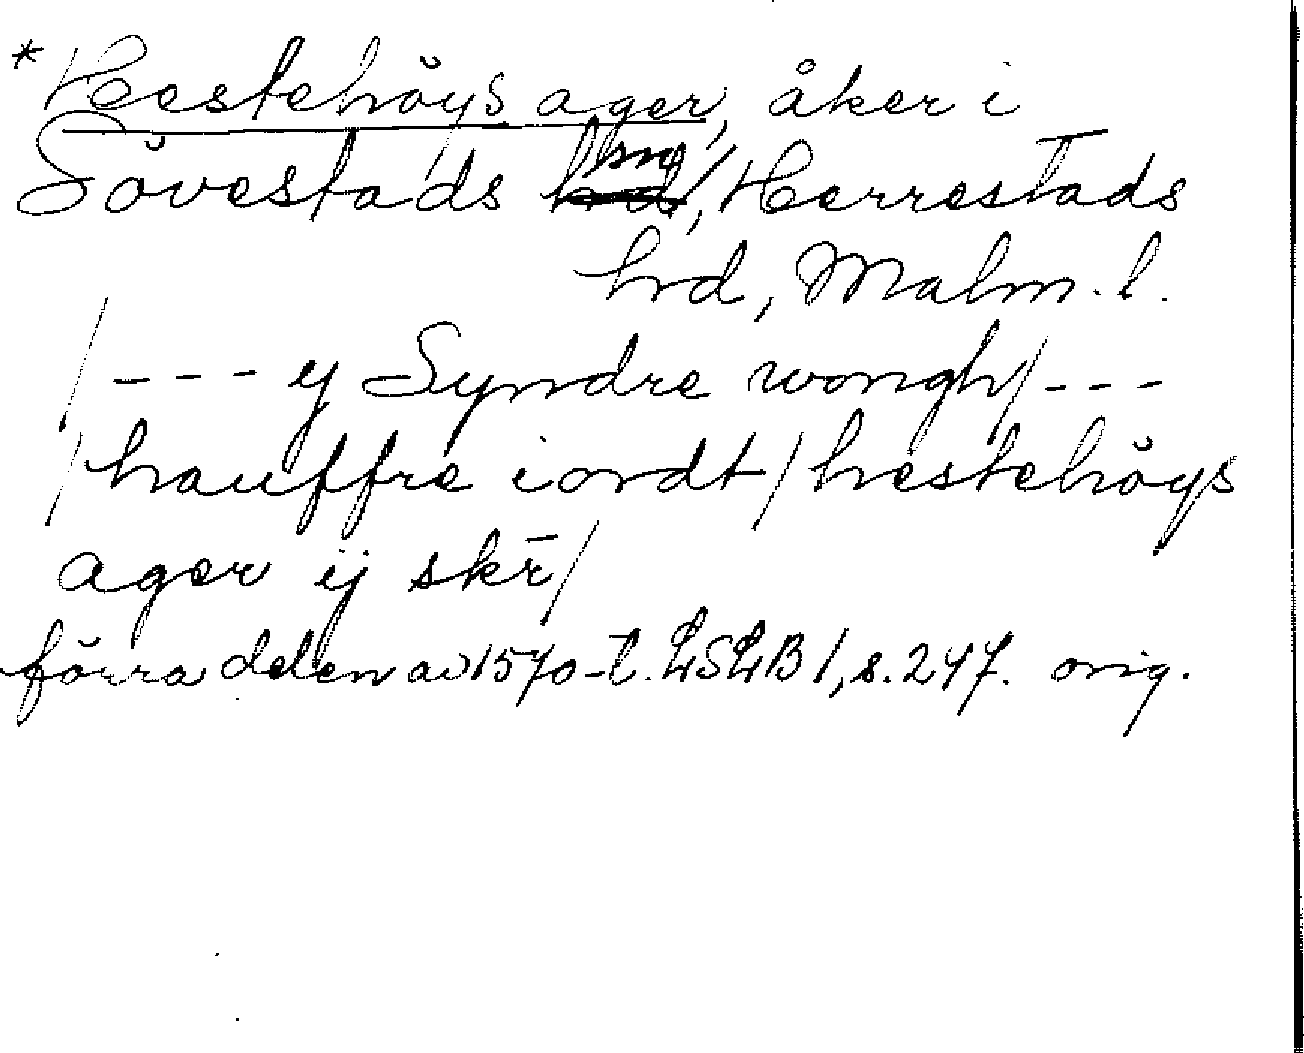 *Hestehöys ager, åker i
Sövestads sn, Herrestads
hrd, Malm. l.
/--- y Syndre wongh/---
/hauffre iordt/hestehöys
ager ij skr̄/
förra delen av 1570-t. LSLB 1, s. 247. orig.